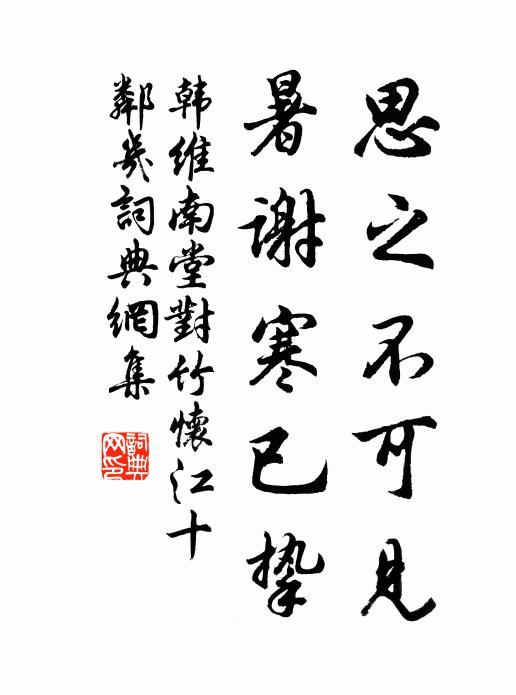 思之不可見
暑謝寒已挚
韩維南堂對竹懷江十
鄰幾詞典網集
詞典
网印